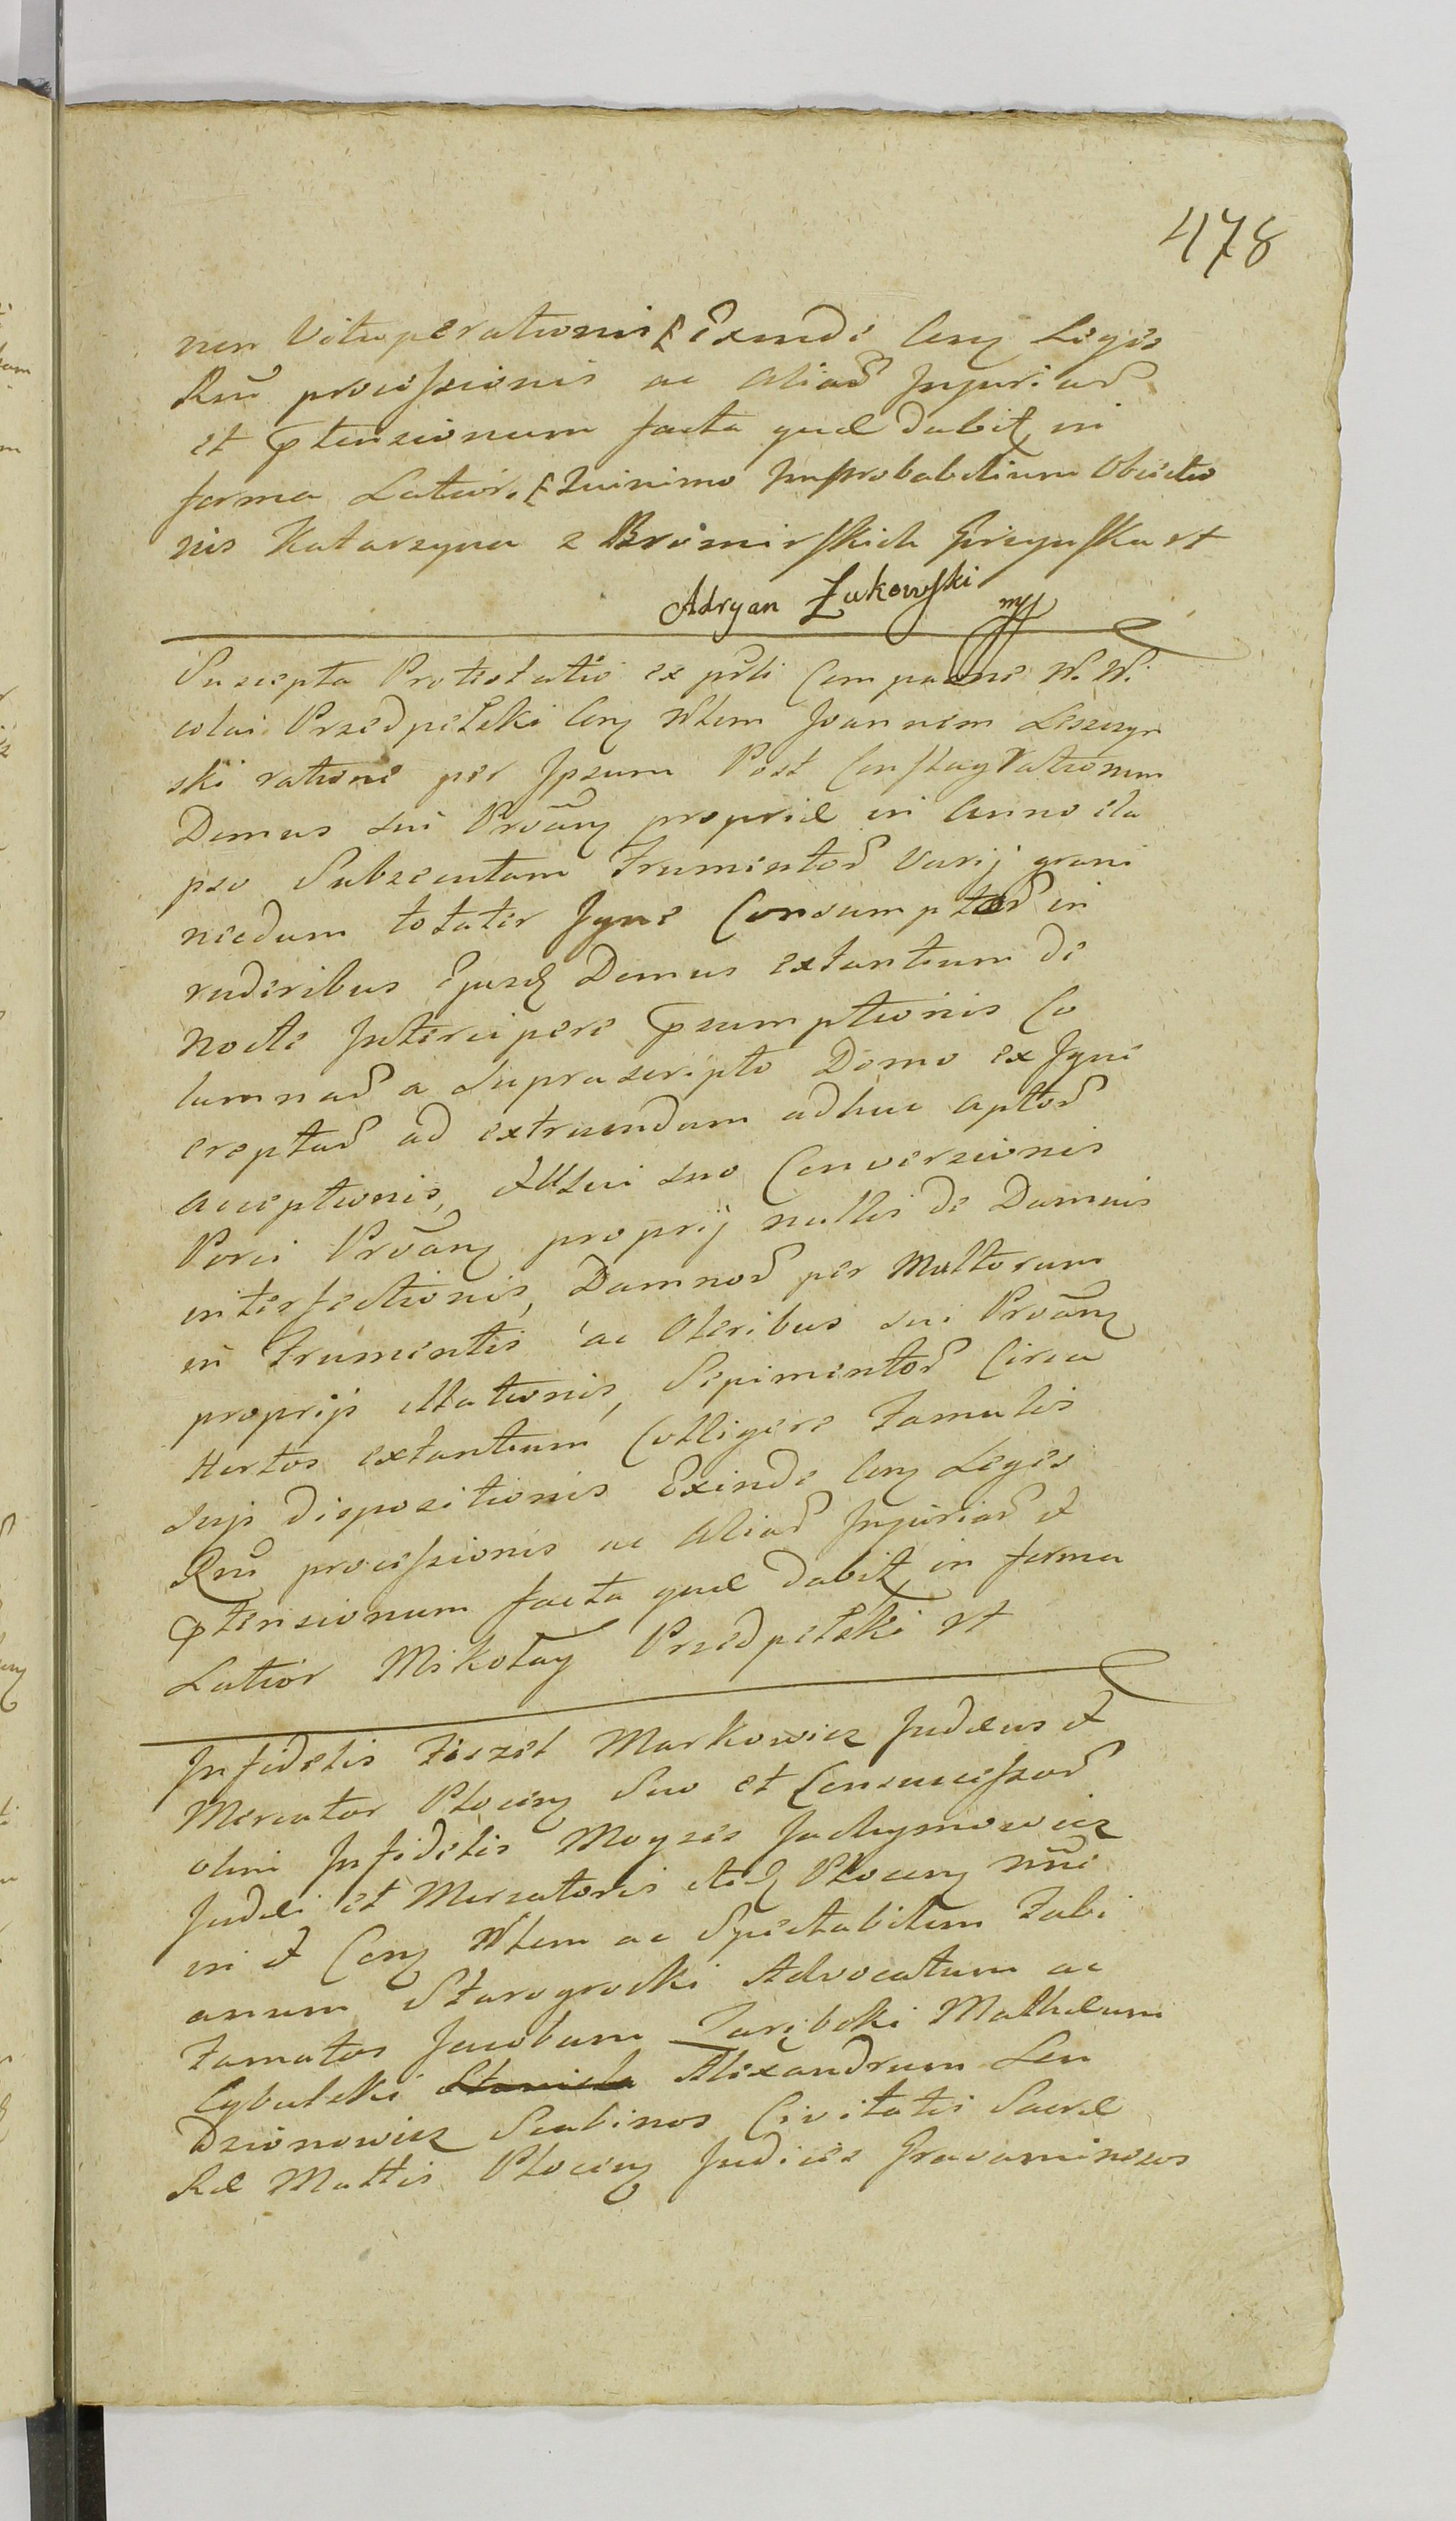 478
nen Vituperationis Exinde Conz Leges
Rni processionis ac aliaꝝ Injuriaꝝ
et ꝓtensionum facta quæ dabit in
forma Latiori Quinimo Improbabilium Obiectio
nis Katarzyna z Bromirskich Grzynska et
Adryan Zukowski mp
Suscepta Protestatio ex prsti Comparne N. Ni
colai Przedpełski Conz Nblem Joannem Leszczyn
ski ratione per Ipsum Post Conflagrationem
Domus sui Proãnz propriæ in Anno ela
pso Subsecutam Frumentoꝝ Varij grani
necdum totaler Igne Consumptoꝝ in
ruderibus Ejusd Domus extantium de
nocte Intercipere ꝓsumptionis Co
lumnaꝝ a suprascripto Domo ex Igne
ereptaꝝ ad extruendum adhuc aptaꝝ
acceptionis, et Usui suo Conversionis
Porci Proãnz proprij nullis de Damnis
interfectionis, Damnoꝝ per Multorum
in Frumentis ac Oleribus sui Proãnz
proprijs illationis, Sepimentoꝝ Circa
Hortos extantium Colligere Famulis
suis dispositionis Exinde Conz Leges
Rni processionis ac Aliaꝝ Injuriaꝝ et
ꝓtensionum facta quæ dabit in forma
Latior Mikołay Przedpełski et
Infidelis Fiszel Markowicz Judæus et
Mercator Plocenz Suo et Consuccessoꝝ
olim Infidelis Moyses Jachymowicz
Judæi et Mercatoris itid Plocenz nõie
in et Conz Nblem ac Spectabilem Fabi
anum Starogrodki Advocatum ac
Famatos Jacobum Zarębski Mathæum
Cybulski Stanisla Alexandrum Len
dzionowicz Scabinos Civitatis Sacræ
Ræ Mattis Plocenz Judices Gravaminosos